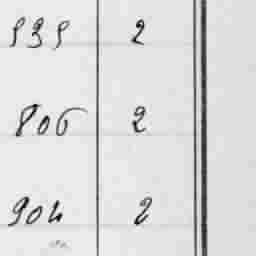 939 2
806 2
904 2